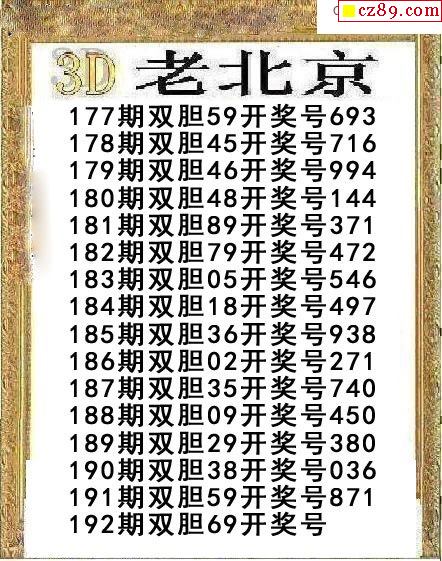 cz89.com
3D 老北京
177期双胆59开奖号693
178期双胆45开奖号716
179期双胆46开奖号994
180期双胆48开奖号144
181期双胆89开奖号371
182期双胆79开奖号472
183期双胆05开奖号546
184期双胆18开奖号497
185期双胆36开奖号938
186期双胆02开奖号271
187期双胆35开奖号740
188期双胆09开奖号450
189期双胆29开奖号380
190期双胆38开奖号036
191期双胆59开奖号871
192期双胆69开奖号